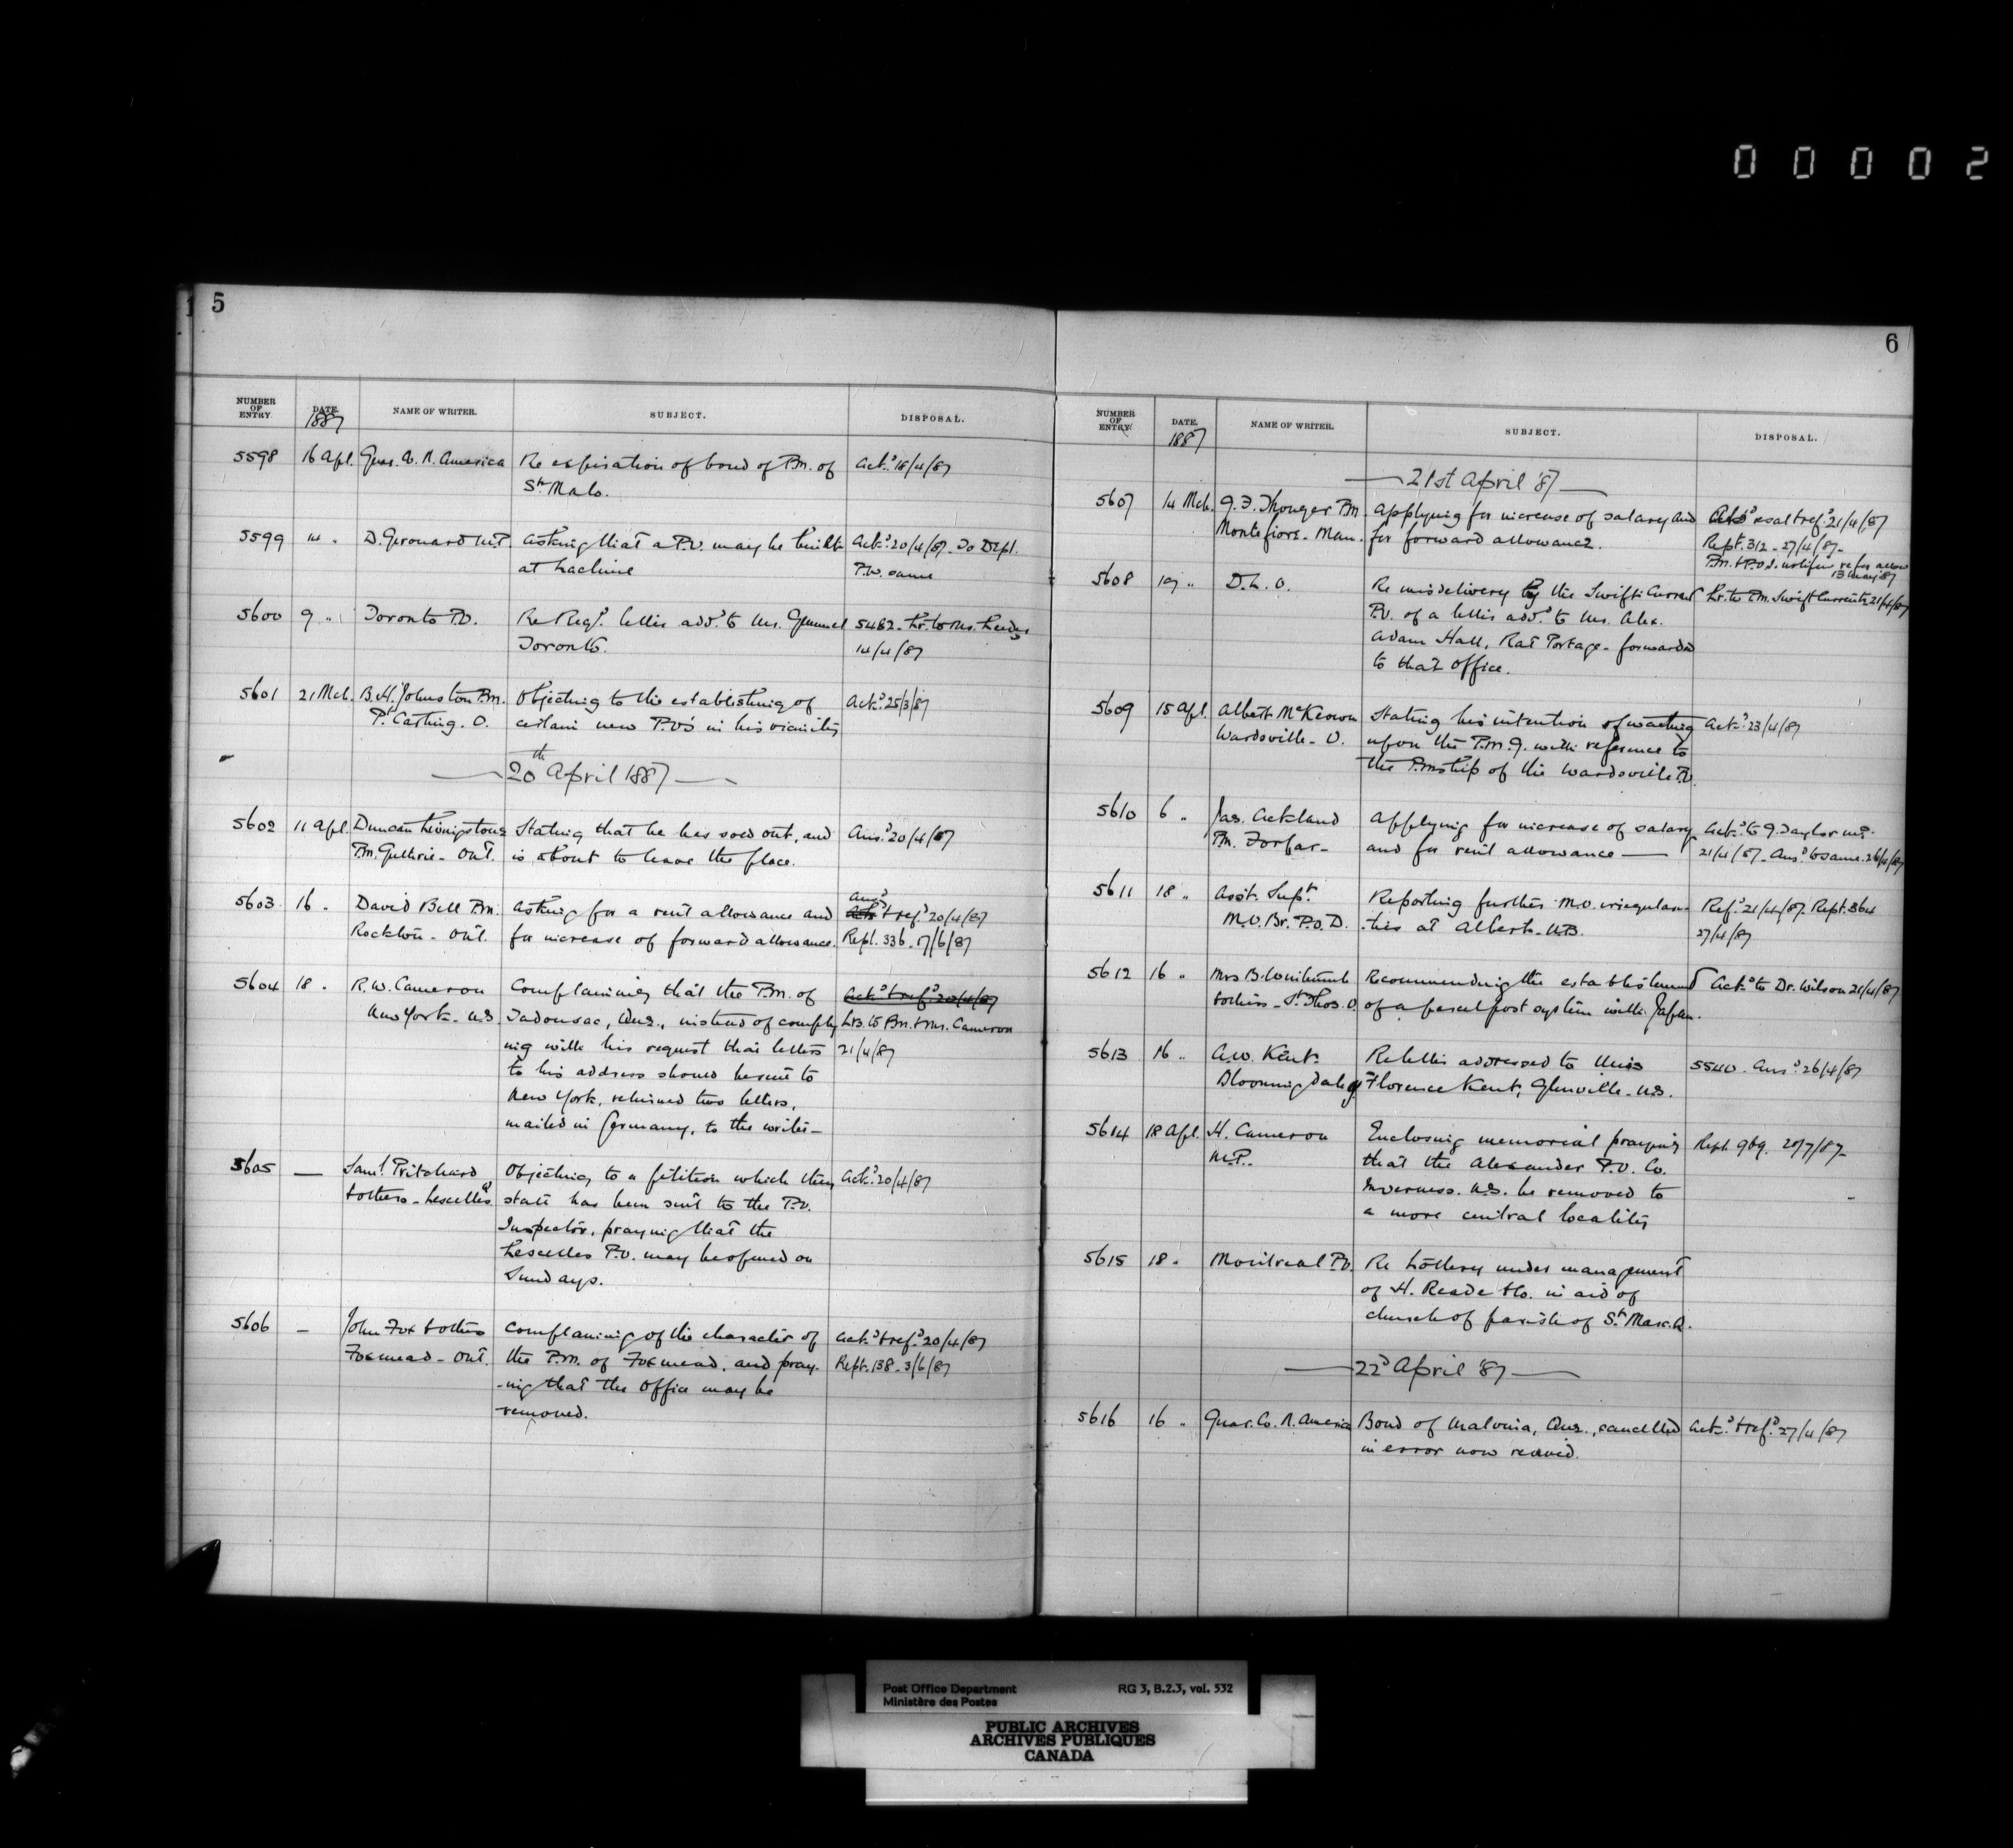 00002
5
NUMBER OF ENTRY. DATE. NAME OF WRITER. SUBJECT. DISPOSAL.
1887
5598 16 Apl. Guar. Co. N. America Re expiration of bond of P.M. of Ackd. 18/4/87
St. Malo.
5599 14 " D. Girouard M.P. Asking that a P.O. may be built Ackd. 20/4/87. To Dept.
at Lachine P.W. same
5600 9 " Toronto P.O. Re Regd. letter addd. to Mr. Gemmel 5482. Lr. to Mr.
Toronto. 14/4/87
5601 21 Mch. B.H. Johnston P.M. Objecting to the establishing of Ackd. 25/3/87
Pt. Carling. O. certain new P.O's in his vicinity
20th April 1887
5602 11 Apl. Duncan Livingstone Stating that he has sold out, and Ansd. 20/4/87
P.M. Guthrie - Ont. is about to leave the place.
5603 16 " David Bell P.M. Asking for a rent allowance and Ansd. & refd. 20/4/87
Rockton - Ont. for increase of forward allowance. Rept. 336. 17/6/87
5604 18 " R.W. Cameron Complaining that the P.M. of Ackd. & refd. 20/4/87
New York - U.S. Tadousac, Que., instead of comply Lrs. to P.M. & Mr. Cameron
ing with his request that letters 21/4/87
to his address should be sent to
New York, returned two letters,
mailed in Germany, to the writer -
5605 — Saml. Pritchard Objecting to a petition which they Ackd. 20/4/87
& others - Lescelles Q state has been sent to the P.O.
Inspector, praying that the
Lescelles P.O. may be opened on
Sundays.
5606 — John Fox & others Complaining of the character of Ackd. & refd. 20/4/87
Foxmead - Ont. the P.M. of Foxmead, and pray- Rept. 138. 3/6/87
-ing that the office may be
removed.
6
NUMBER OF ENTRY. DATE. NAME OF WRITER. SUBJECT. DISPOSAL.
1887
21st April '87
5607 14 Mch. P.M. Applying for increase of salary and Ackd. & refd. 21/4/87
Montefiore - Man. for forward allowance. Rept. 312 - 27/4/87 -
P.M. & P.O.I. notified re for allow
13 May 87
5608 19 " D.L.O. Re misdelivery by the Swift Current Lr. to P.M. Swift Current 21/4/87
P.O. of a letter addd. to Mr. Alex.
Adam Hall, Rat Portage - forwarded
to that office.
5609 15 Apl. Albert McKeown Stating his intention of waiting Ackd. 23/4/87
Wardsville - O. upon the P.M.G. with reference to
the P.M.ship of the Wardsville P.O.
5610 6 " Jas. Ackland Applying for increase of salary Ackd. to G. Taylor M.P.
P.M. Forfar - and for rent allowance — 21/4/87 - Ansd. to same. 26/4/87
5611 18 " Asst. Supt. Reporting further M.O. irregulari- Refd. 21/4/87. Rept. 364
M.O. Br. P.O.D. -ties at Albert - N.B. 27/4/87
5612 16 " Mrs B. & others - St. Thos. O. Recommending the establishment Ackd. to Dr. Wilson 21/4/87
of a parcel post system with Japan.
5613 16 " A.W. Kent. Re letter addressed to Miss 5540. Ansd. 26/4/87
Bloomingdale Florence Kent, Glenville - N.S.
5614 18 Apl. H. Cameron Enclosing memorial praying Rept. 969. 20/7/87 -
M.P. that the Alexander P.O. Co.
Inverness. N.S. be removed to
a more central locality
5615 18 " Montreal P.O. Re Lottery under management
of H. Reade & Co. in aid of
church of parish of St. Marc. Q.
22d April '87
5616 16 " Guar. Co. N. America Bond of Malvina, Que., cancelled Ackd. & refd. 27/4/87
in error now revived.
Post Office Department RG 3, B.2.3, vol. 532
Ministère des Postes
PUBLIC ARCHIVES
ARCHIVES PUBLIQUES
CANADA